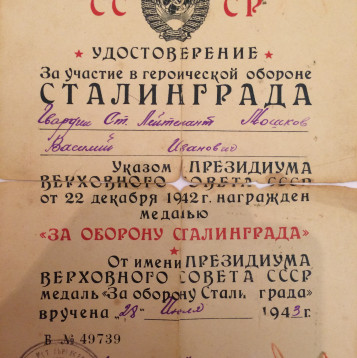 СССР
★ УДОСТОВЕРЕНИЕ ★
За участие в героической обороне
СТАЛИНГРАДА
Гвардии Ст. Лейтенант Мошков
Василий Иванович
Указом ПРЕЗИДИУМА
ВЕРХОВНОГО СОВЕТА СССР
от 22 декабря 1942 г. награжден
медалью
«ЗА ОБОРОНУ СТАЛИНГРАДА»
От имени ПРЕЗИДИУМА
ВЕРХОВНОГО СОВЕТА СССР
медаль «За оборону Сталинграда»
вручена "28" Июля 1943 г.
Б № 49739